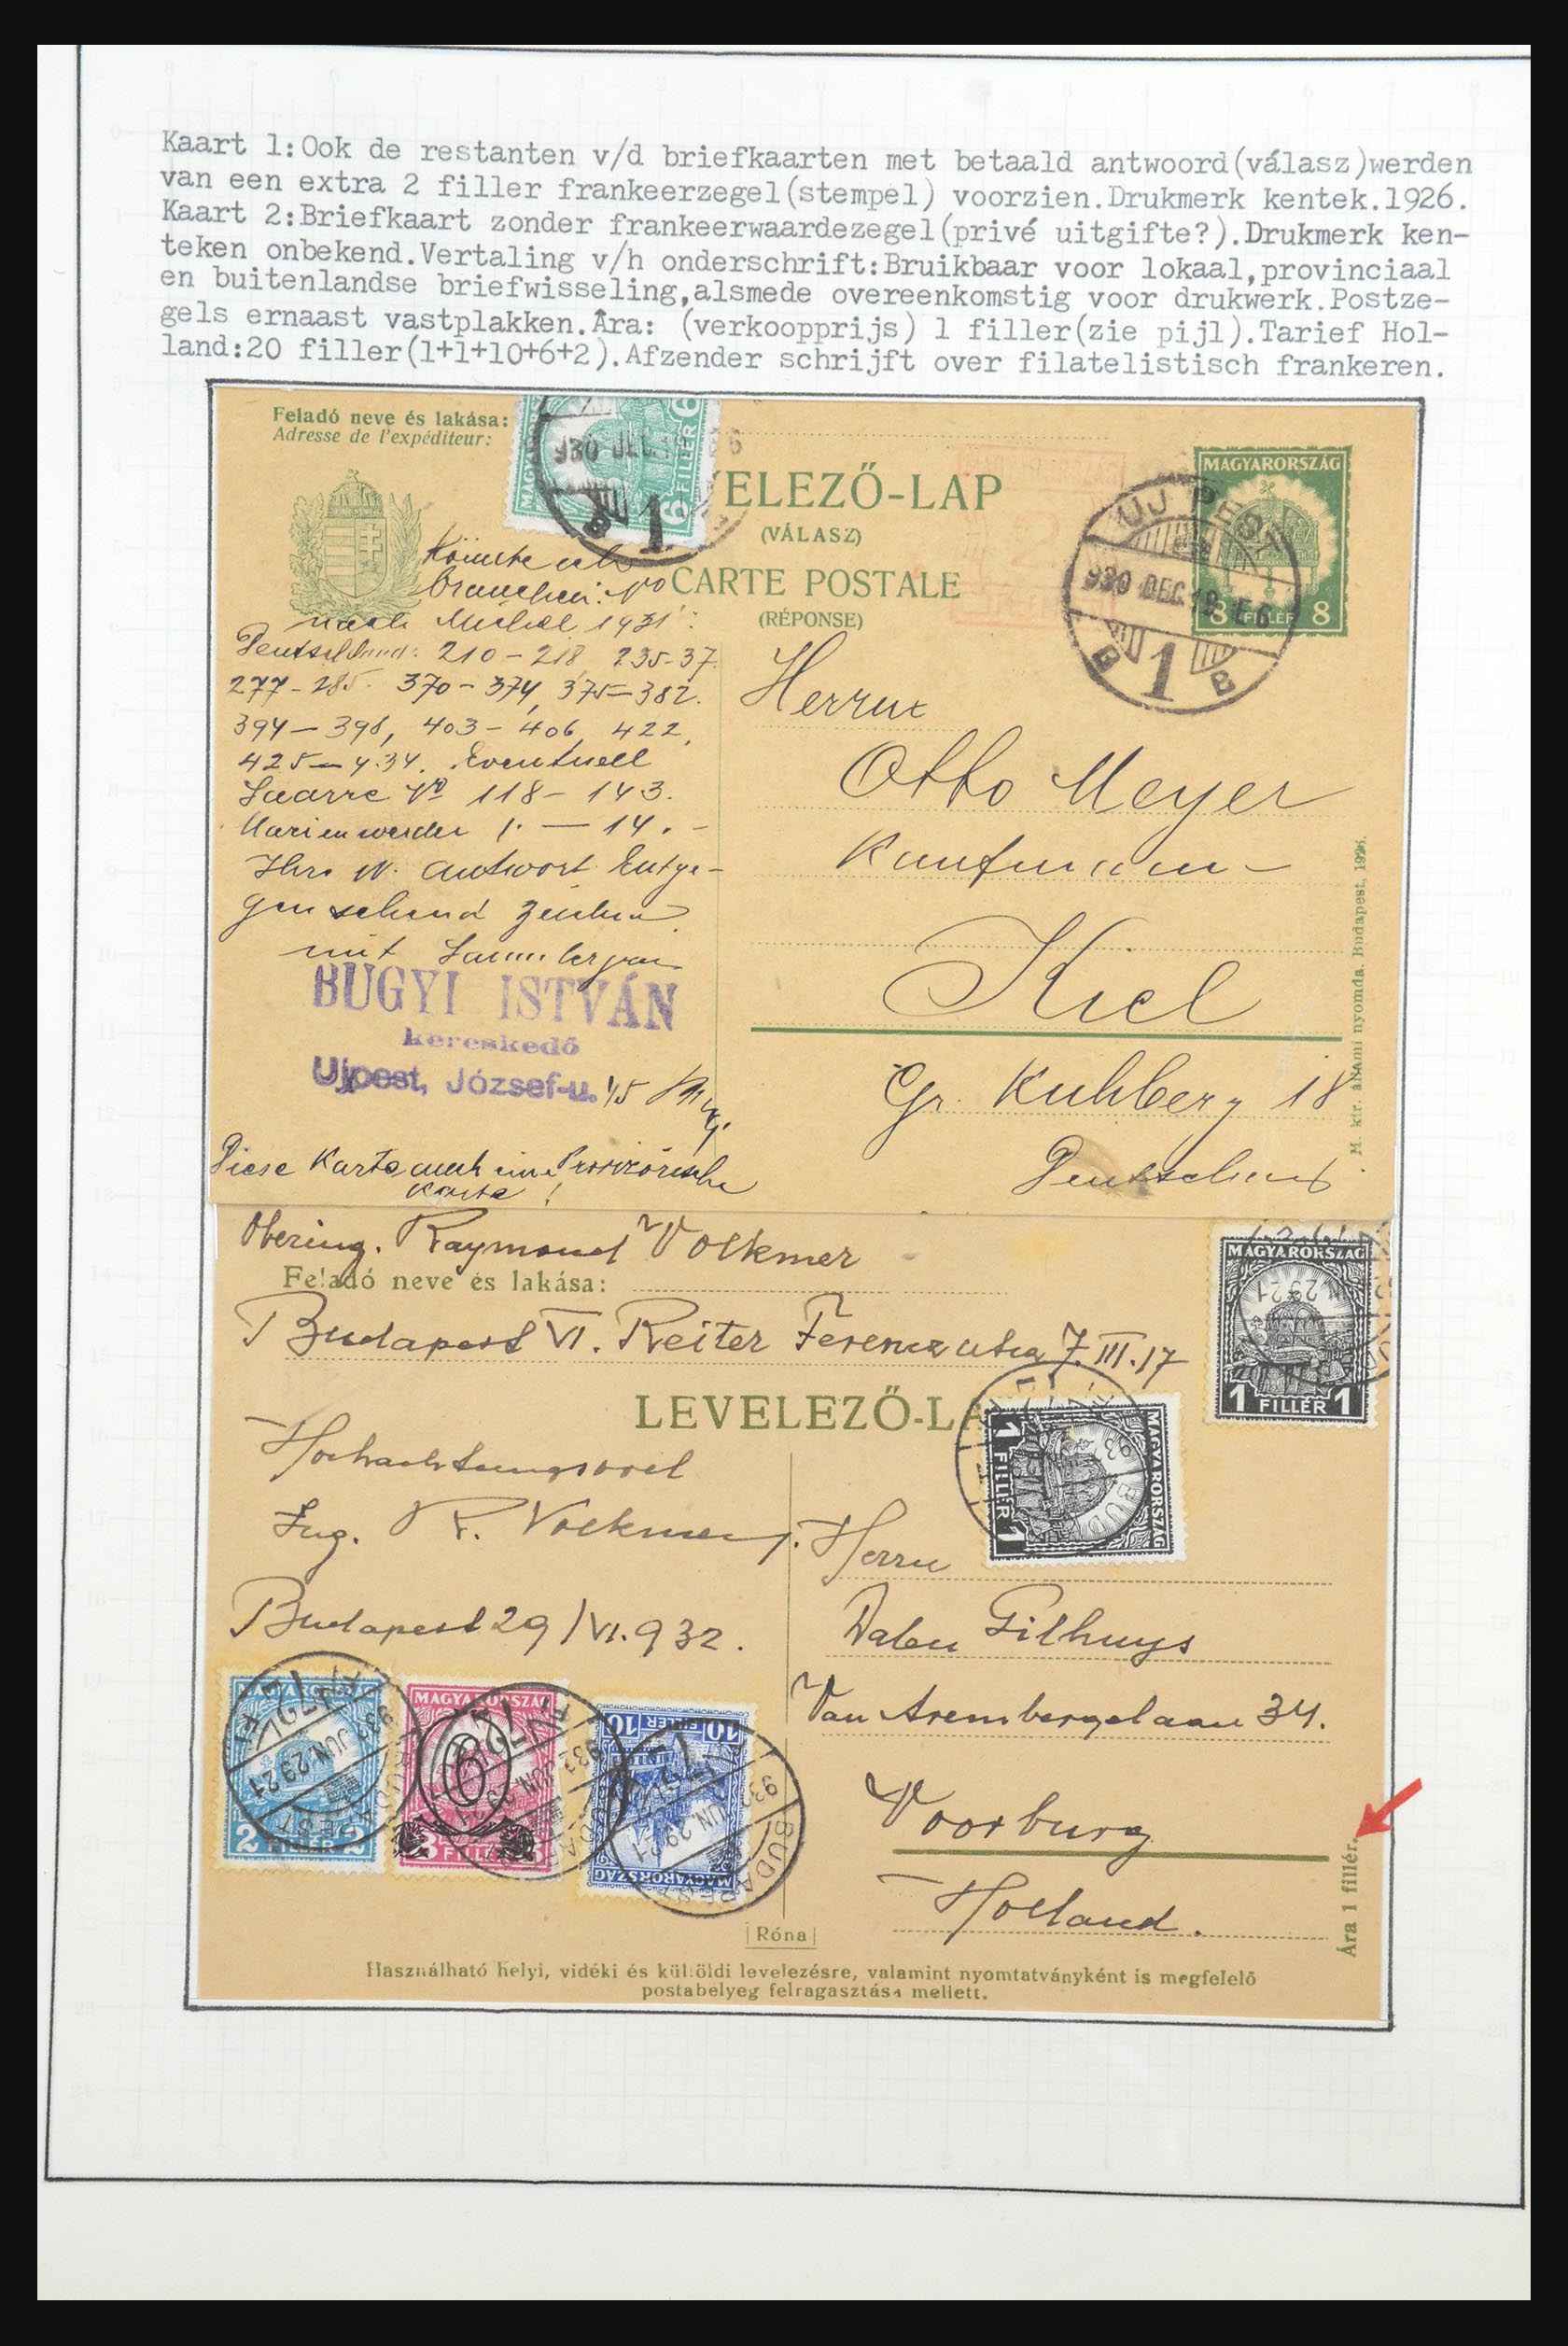 Kaart 1:Ook de restanten v/d briefkaarten met betaald antwoord(válasz)werden
van een extra 2 filler frankeerzegel(stempel) voorzien.Drukmerk kentek.1926.
Kaart 2:Briefkaart zonder frankeerwaardezegel(privé uitgifte?).Drukmerk ken-
teken onbekend.Vertaling v/h onderschrift:Bruikbaar voor lokaal,provinciaal
en buitenlandse briefwisseling,alsmede overeenkomstig voor drukwerk.Postze-
gels ernaast vastplakken.Ára: (verkoopprijs) 1 filler(zie pijl).Tarief Hol-
land:20 filler(1+1+10+6+2).Afzender schrijft over filatelistisch frankeren.
Feladó neve és lakása:
Adresse de l'expéditeur:
6 FILLÉR 6
930 DEC.
B 1
VELEZŐ-LAP
(VÁLASZ)
CARTE POSTALE
(RÉPONSE)
MAGYARORSZÁG
8 FILLÉR 8
UJPEST
930 DEC. 19. E6
B 1 B
Könnte ich
brauchen: No
nach Michel 1931:
Deutschland: 210-218 235-37
277-285. 370-374, 375-382.
394-398, 403-406, 422,
425-434. Eventuell
Saarre No 118-143.
Marienwerder 1.-14.-
Ihre w. Antwort Entge-
gen sehend zeichne
mit
BUGYI ISTVÁN
kereskedő
Ujpest, József-u. 15
Diese Karte auch eine Provizorische
Karte!
Herrn
Otto Meyer
Kaufmann
Kiel
Gr. Kuhberg 18
Deutschland
M. kir. állami nyomda. Budapest, 1926.
Obering. Raymond Volkmer
Feladó neve és lakása:
Budapest VI. Reiter Ferenc utca 7. III. 17
MAGYARORSZÁG
1 FILLÉR 1
LEVELEZŐ-LA
MAGYARORSZÁG
1 FILLÉR 1
Hochachtungsvoll
Ing. R. Volkmer
Budapest 29/VI.932.
Herrn
Dalen Gilhuys
Van Arembergelaan 34.
Voorburg
Holland.
MAGYARORSZÁG
2 FILLÉR 2
932 JUN. 29 21
BUDAPEST 72
MAGYARORSZÁG
6
FILLÉR
MAGYARORSZÁG
10 FILLÉR 10
932 JUN. 29 21
BUDAPEST 72
Róna
Ára 1 fillér.
Használható helyi, vidéki és külföldi levelezésre, valamint nyomtatványként is megfelelő
postabelyeg felragasztása mellett.